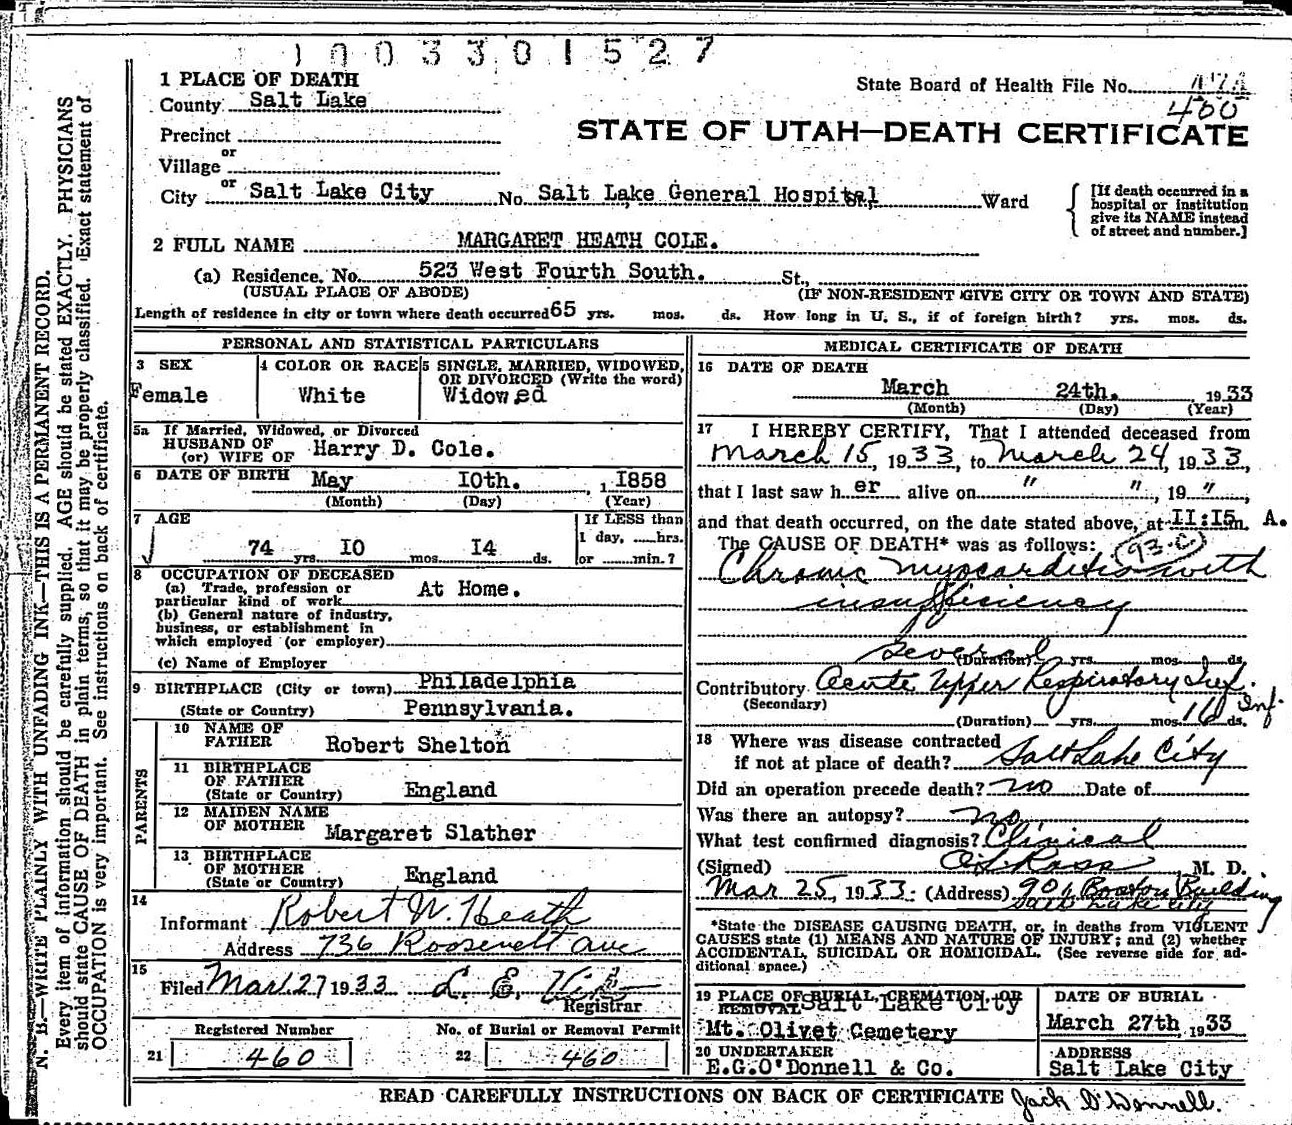 1003301527
1 PLACE OF DEATH
State Board of Health File No.
County Salt Lake
400
Precinct
STATE OF UTAH—DEATH CERTIFICATE
or
Village
or
City Salt Lake City No. Salt Lake General Hospital Ward
[If death occurred in a hospital or institution give its NAME instead of street and number.]
2 FULL NAME MARGARET HEATH COLE.
(a) Residence. No. 523 West Fourth South. St.,
(USUAL PLACE OF ABODE) (IF NON-RESIDENT GIVE CITY OR TOWN AND STATE)
Length of residence in city or town where death occurred 65 yrs. mos. ds. How long in U. S., if of foreign birth? yrs. mos. ds.
PERSONAL AND STATISTICAL PARTICULARS
3 SEX
Female
4 COLOR OR RACE
White
5 SINGLE, MARRIED, WIDOWED,
OR DIVORCED (Write the word)
Widowed
5a If Married, Widowed, or Divorced
HUSBAND OF
(or) WIFE OF Harry D. Cole.
6 DATE OF BIRTH May I0th. , 1 I858
(Month) (Day) (Year)
7 AGE
74 yrs. I0 mos. I4 ds.
If LESS than
1 day, ......hrs.
or ......min.?
8 OCCUPATION OF DECEASED
(a) Trade, profession or
particular kind of work At Home.
(b) General nature of industry,
business, or establishment in
which employed (or employer)
(c) Name of Employer
9 BIRTHPLACE (City or town) Philadelphia
(State or Country) Pennsylvania.
PARENTS
10 NAME OF
FATHER Robert Shelton
11 BIRTHPLACE
OF FATHER
(State or Country) England
12 MAIDEN NAME
OF MOTHER Margaret Slather
13 BIRTHPLACE
OF MOTHER
(State or Country) England
14
Informant Robert W. Heath
Address 736 Roosevelt Ave
15
Filed Mar 27 1933 L. E.
Registrar
Registered Number No. of Burial or Removal Permit
21 460 22 460
MEDICAL CERTIFICATE OF DEATH
16 DATE OF DEATH
March 24th. 1933
(Month) (Day) (Year)
17 I HEREBY CERTIFY, That I attended deceased from
March 15, 1933, to March 24, 1933,
that I last saw her alive on " ", 19 ",
and that death occurred, on the date stated above, at II:I5 m. A.
The CAUSE OF DEATH* was as follows: 93-C
Chronic myocarditis with
insufficiency
Several
(Duration) yrs. mos. ds.
Contributory Acute Upper Respiratory Inf.
(Secondary) Inf.
(Duration) yrs. mos. 10 ds.
18 Where was disease contracted
if not at place of death? Salt Lake City
Did an operation precede death? no Date of
Was there an autopsy? no
What test confirmed diagnosis? Clinical
(Signed) Ross, M. D.
Mar 25, 1933 (Address) 906 Boston Building
Salt Lake City
*State the DISEASE CAUSING DEATH, or, in deaths from VIOLENT
CAUSES state (1) MEANS AND NATURE OF INJURY; and (2) whether
ACCIDENTAL, SUICIDAL OR HOMICIDAL. (See reverse side for ad-
ditional space.)
19 PLACE OF BURIAL, CREMATION, OR
REMOVAL Salt Lake City
Mt. Olivet Cemetery
DATE OF BURIAL
March 27th, 1933
20 UNDERTAKER
E.G.O'Donnell & Co.
ADDRESS
Salt Lake City
READ CAREFULLY INSTRUCTIONS ON BACK OF CERTIFICATE Jack O'Donnell.
N. B.—WRITE PLAINLY WITH UNFADING INK—THIS IS A PERMANENT RECORD.
Every item of information should be carefully supplied. AGE should be stated EXACTLY. PHYSICIANS
should state CAUSE OF DEATH in plain terms, so that it may be properly classified. Exact statement of
OCCUPATION is very important. See instructions on back of certificate.